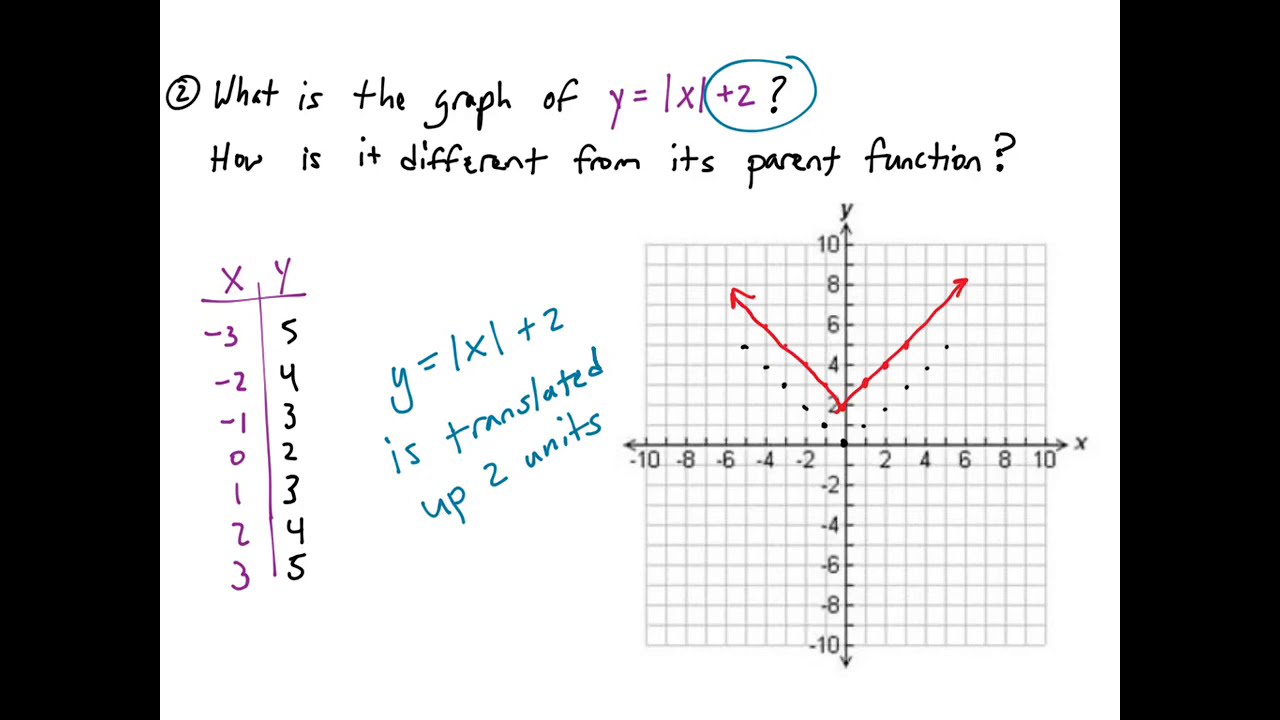 ② What is the graph of y = |x| +2 ?
How is it different from its parent function?
x y
-3 5
-2 4
-1 3
0 2
1 3
2 4
3 5
y = |x| + 2
is translated
up 2 units
y
10
8
6
4
2
-10 -8 -6 -4 -2 2 4 6 8 10 x
-2
-4
-6
-8
-10